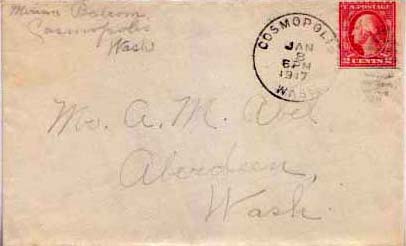 Cosmopolis
Wash
COSMOPOLIS
JAN
8
6PM
1917
WASH
U.S. POSTAGE
2 CENTS 2
A. M. Abel
Aberdeen,
Wash.